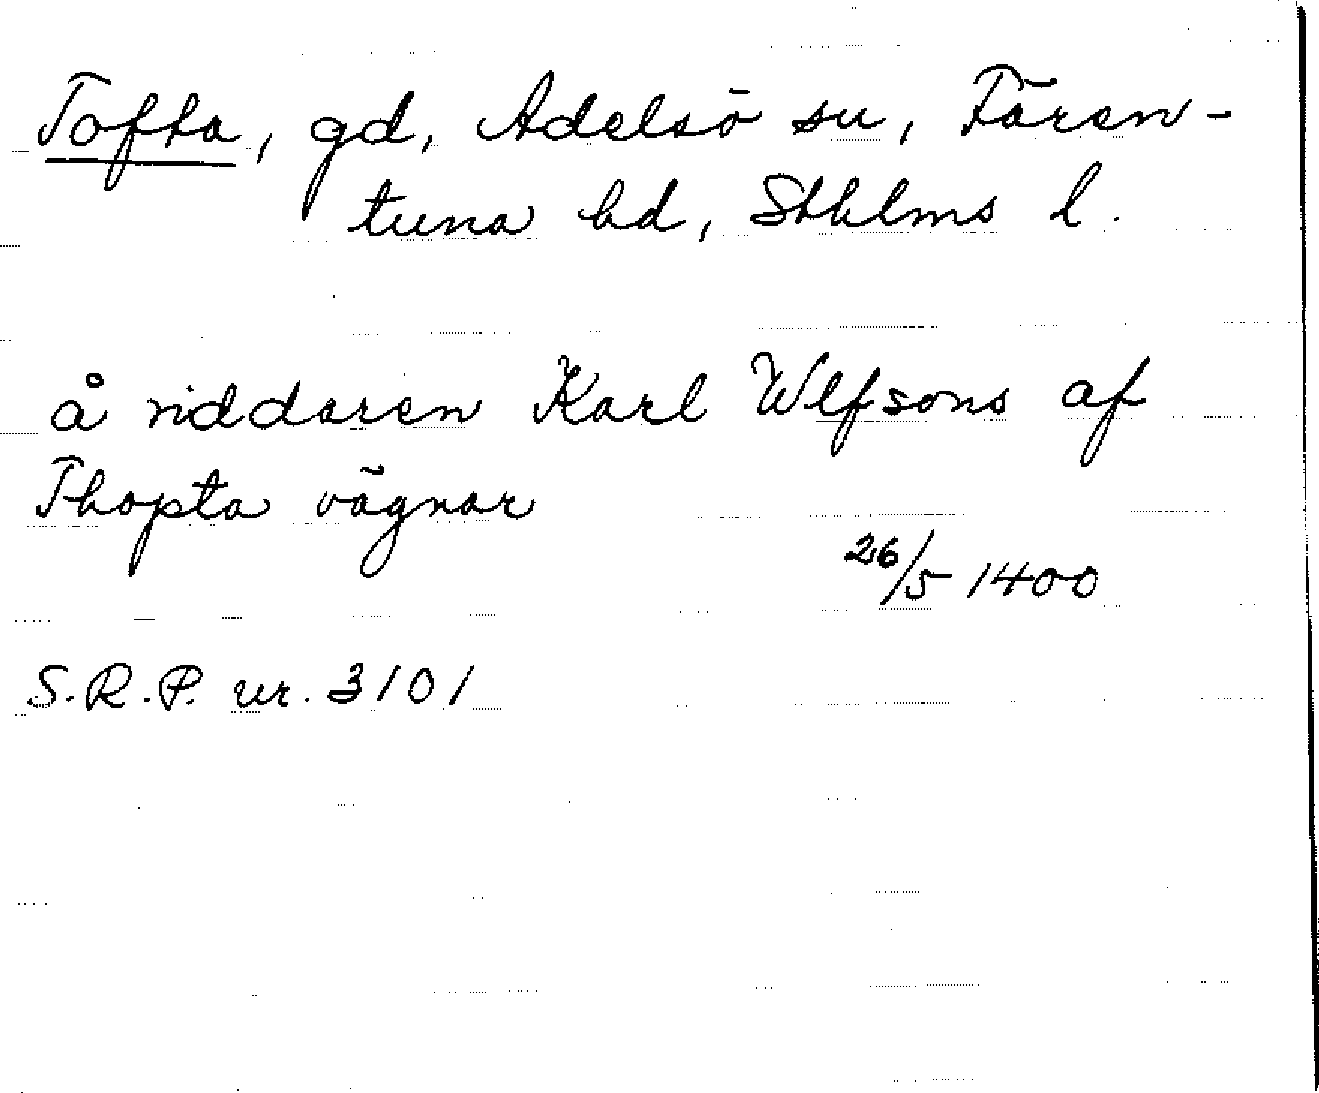 Tofta, gd, Adelsö sn, Fären-
tuna hd, Sthlms l.
å riddaren Karl Wlfsons af
Thopta vägnar
26/5 1400
S.R.P. nr. 3101